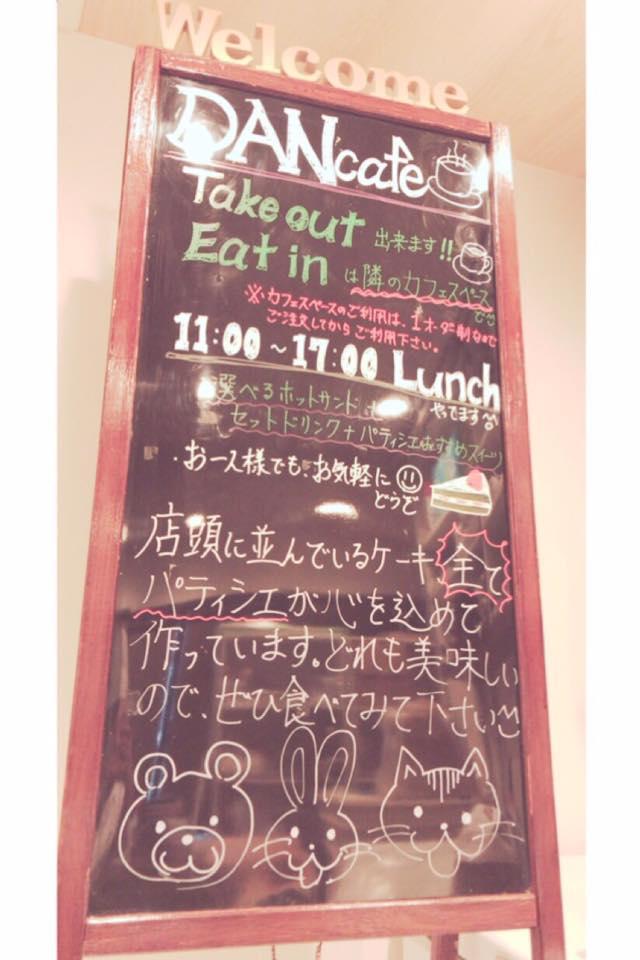 Welcome
DANcafe
Take out 出来ます!!
Eat in は隣のカフェスペース
※カフェスペースのご利用は、1オーダー制なので
ご注文してからご利用下さい。
11:00～17:00 Lunch
やってます
選べるホットサンド+
セットドリンク+パティシエおすすめスイーツ
・お一人様でも、お気軽に
どうぞ
店頭に並んでいるケーキ、全て
パティシエが心を込めて
作っています。どれも美味しい
ので、ぜひ食べてみて下さい